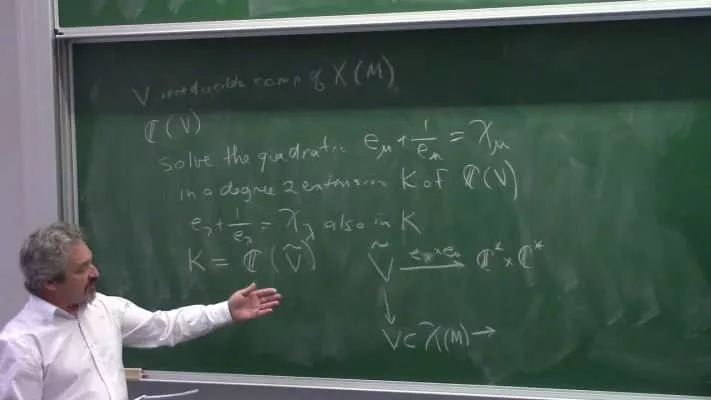 V irreducible comp of X(M)
ℂ(V)
solve the quadratic e_μ + 1/e_μ = χ_μ
in a degree 2 extension K of ℂ(V)
e_λ + 1/e_λ = χ_λ also in K
K = ℂ(Ṽ)
Ṽ ⟶ ℂ* × ℂ*
↓
V ⊂ X(M) →